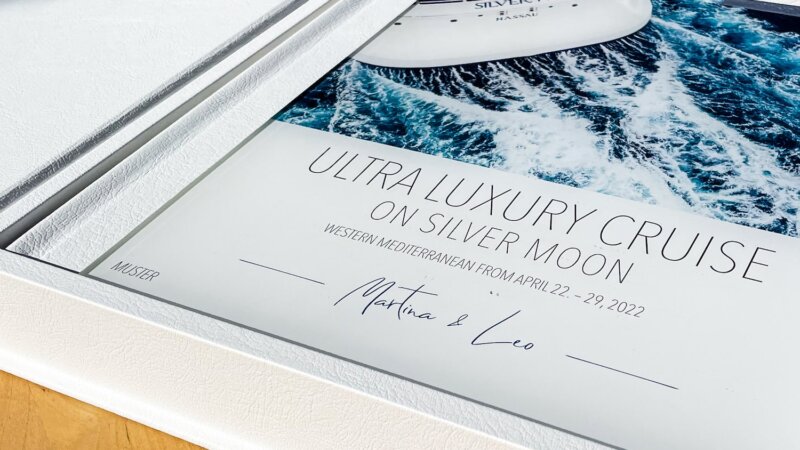 NASSAU
ULTRA LUXURY CRUISE
ON SILVER MOON
WESTERN MEDITERRANEAN FROM APRIL 22. - 29, 2022
Martina & Leo
MUSTER